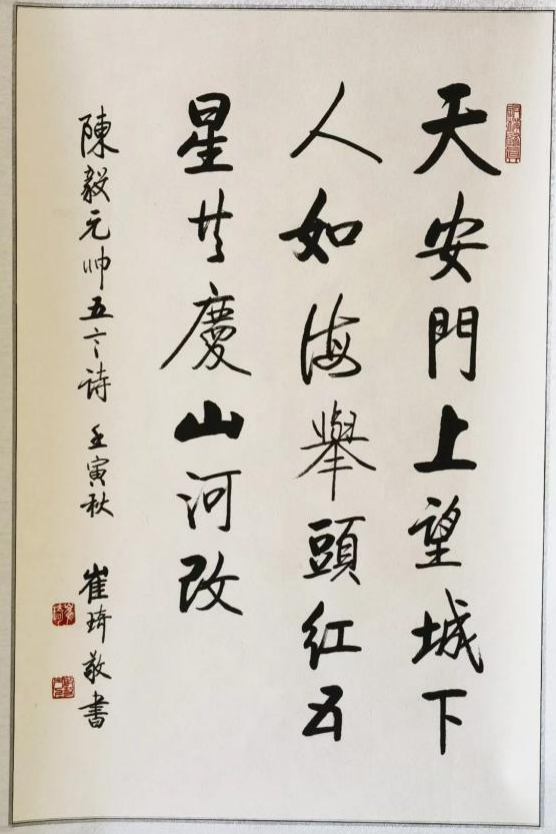 天安門上望城下
人如海舉頭紅五
星共慶山河改
陳毅元帅五言诗 壬寅秋 崔琦敬書